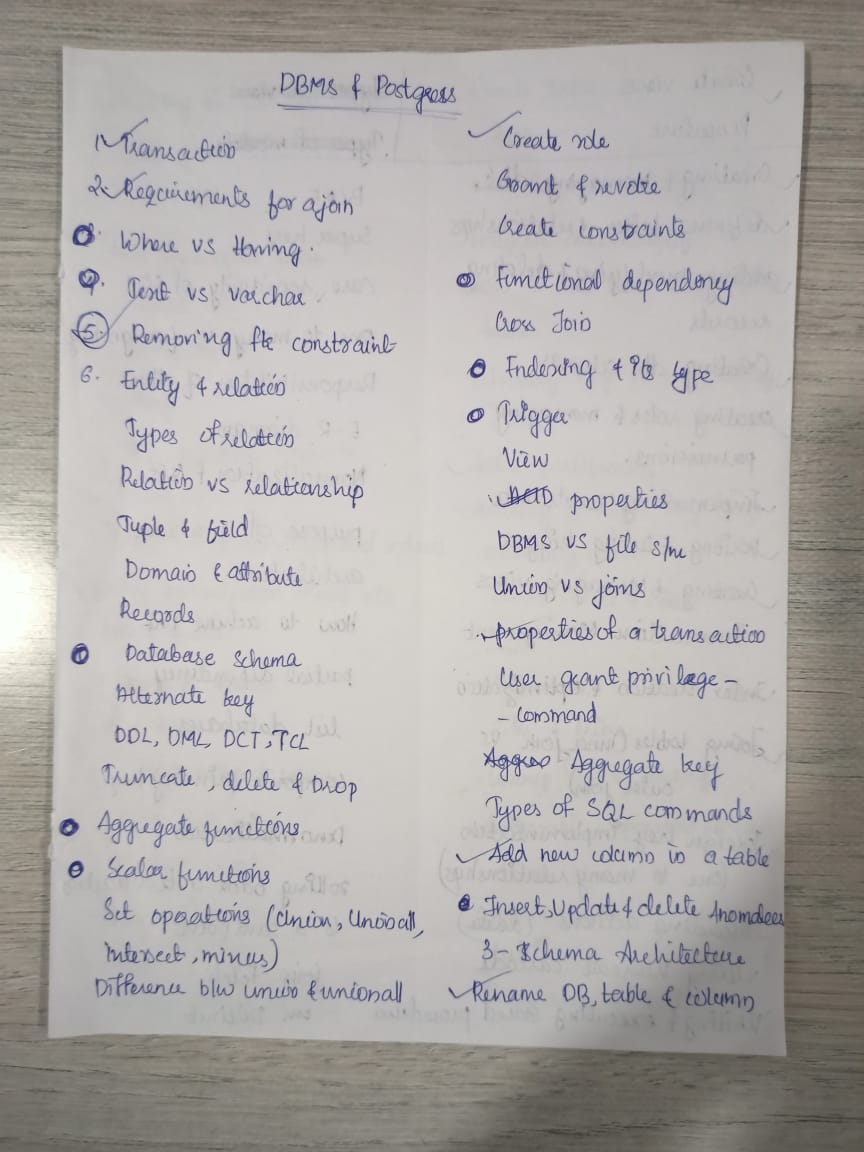 DBMS & Postgress
1. Transaction
2. Requirements for a join
3. Where vs Having.
4. Text vs varchar.
5. Removing fk constraint
6. Entity & relation
Types of relation
Relation vs relationship
Tuple & field
Domain & attribute
Records
Database schema
Alternate key
DDL, DML, DCT, TCL
Truncate, delete & Drop
Aggregate functions
Scalar functions
Set operations (Union, Union all,
intersect, minus)
Difference b/w union & unionall
Create role
Grant & revoke
Create constraints
Functional dependency
Cross Join
Indexing & its type
Trigger
View
ACID properties
DBMS vs file s/m
Union vs joins
properties of a transaction
User grant privilege -
- command
Aggregate key
Types of SQL commands
Add new column in a table
Insert, Update & delete Anomalies
3 - Schema Architecture
Rename DB, table & column